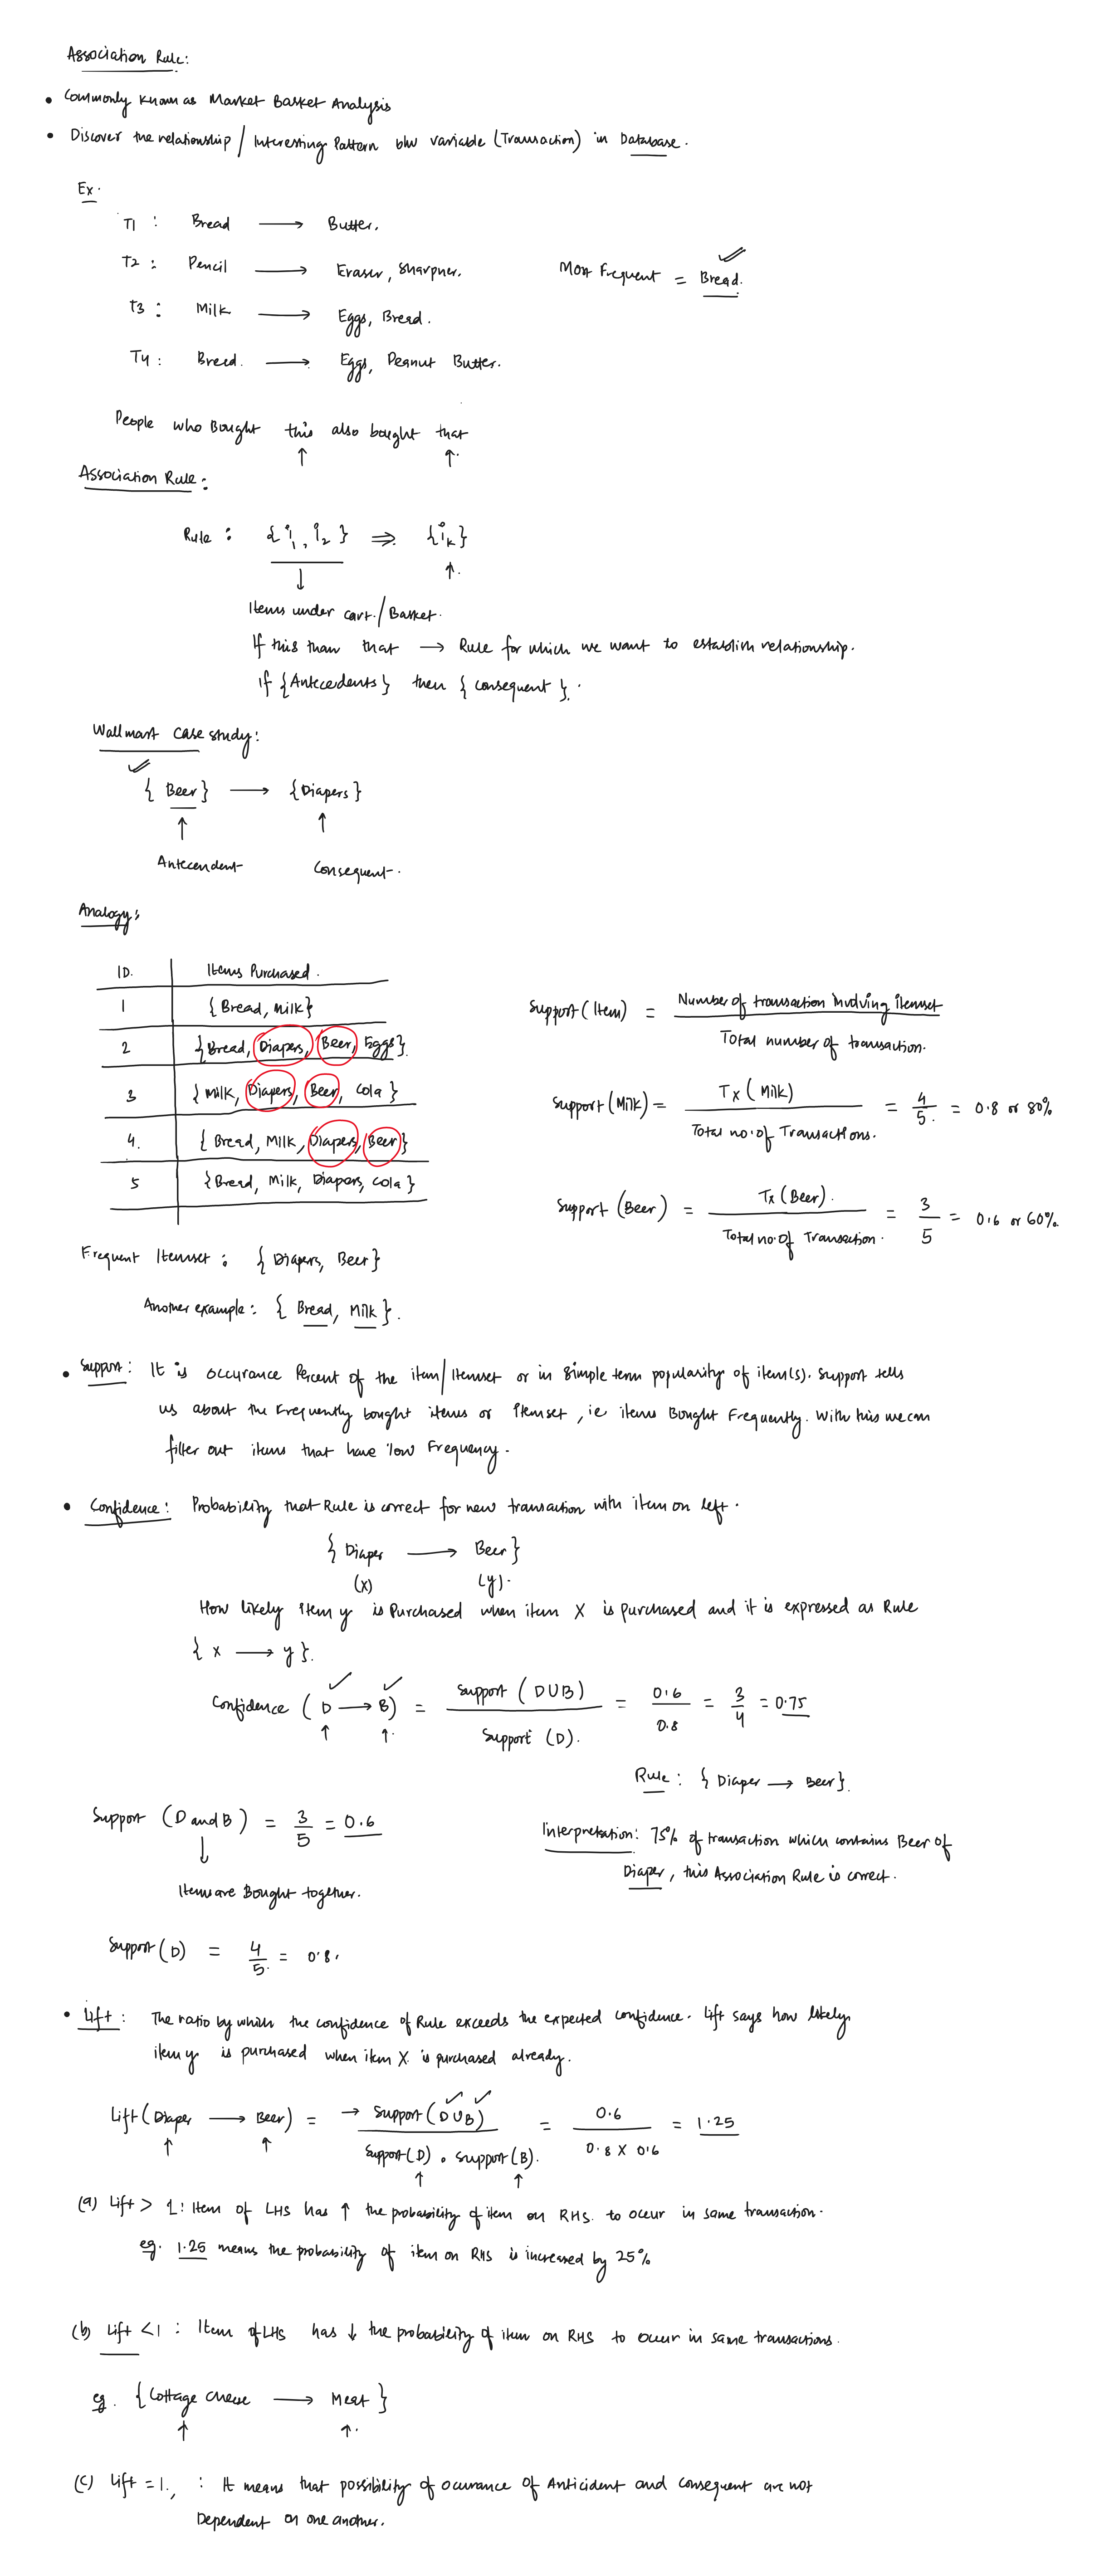 Association Rule:
• Commonly known as Market Basket Analysis
• Discover the relationship / Interesting Pattern b/w variable (Transaction) in Database.
Ex.
T1 : Bread → Butter.
T2 : Pencil → Eraser, Sharpner.
Most Frequent = Bread.
T3 : Milk → Eggs, Bread.
T4 : Bread. → Eggs, Peanut Butter.
People who Bought this also bought that
↑ ↑
Association Rule:
Rule : { i₁, i₂ } ⇒ {iₖ}
↓ ↑
Items under cart. / Basket.
If this than that → Rule for which we want to establish relationship.
if {Antecedents} then { consequent }.
Wallmart case study:
✓
{ Beer } → {Diapers}
↑ ↑
Antecendent Consequent.
Analogy:
ID. Items Purchased.
1 {Bread, Milk}
2 {Bread, Diapers, Beer, Eggs}
3 { Milk, Diapers, Beer, Cola }
4. { Bread, Milk, Diapers, Beer}
5 {Bread, Milk, Diapers, Cola }
Support (Item) = Number of transaction involving itemset / Total number of transaction.
Support (Milk) = Tx (Milk) / Total no. of Transactions. = 4/5 = 0.8 or 80%
Support (Beer) = Tx (Beer). / Total no. of Transaction. = 3/5 = 0.6 or 60%
Frequent Itemset : { Diapers, Beer}
Another example: { Bread, Milk }.
• Support: It is occurance Percent of the item/Itemset or in simple term popularity of item(s). Support tells
us about the Frequently bought items or Itemset, ie items Bought Frequently. With this we can
filter out items that have low Frequency.
• Confidence: Probability that Rule is correct for new transaction with item on left.
{ Diaper → Beer}
(x) (y).
How likely item y is Purchased when item X is purchased and it is expressed as Rule
{ x → y }.
Confidence ( D → B) = Support (D∪B) / Support (D). = 0.6 / 0.8 = 3/4 = 0.75
Rule: { Diaper → Beer}.
Support (D and B) = 3/5 = 0.6
↓
Items are Bought together.
Interpretation: 75% of transaction which contains Beer of
Diaper, this Association Rule is correct.
Support (D) = 4/5 = 0.8.
• Lift: The ratio by which the confidence of Rule exceeds the expected confidence. Lift says how likely
item y is purchased when item X is purchased already.
Lift (Diaper → Beer) = → Support (D∪B) / Support (D) . Support (B). = 0.6 / 0.8 X 0.6 = 1.25
(a) Lift > 1: Item of LHS has ↑ the probability of item on RHS. to occur in same transaction.
eg. 1.25 means the probability of item on RHS is increased by 25%
(b) Lift < 1 : Item of LHS has ↓ the probability of item on RHS to occur in same transactions.
eg. {Cottage cheese → Meat }
↑ ↑.
(c) Lift = 1., : It means that possibility of ocurance of Anticident and Consequent are not
Dependent on one another.